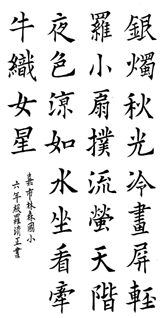 銀燭秋光冷畫屏輕
羅小扇撲流螢天階
夜色涼如水坐看牽
牛織女星
嘉市林森國小
六年級羅正書